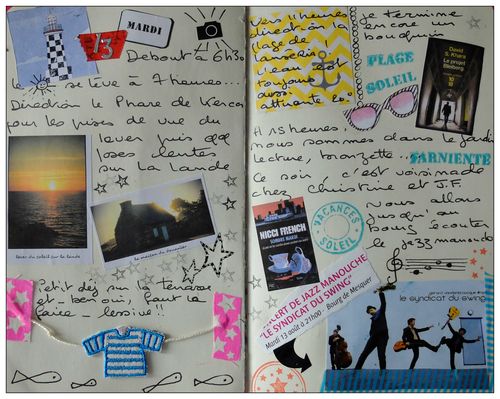 MARDI
13
Debout à 6h30
le se lève à 7 heures...
Direction le Phare de Kercou
pour les prises de vue du
lever puis qq
roses lentes
sur la lande
lever du soleil sur la lande
la maison du douanier
Petit déj sur la terrasse
et - ben oui, faut la
faire - lessive !!
Vers 11 heures
direction la
plage de
Lanseria
l'eau est
toujours
aussi
attirante la.
je termine
encore un
bouquin
PLAGE
SOLEIL
David S. Khara
Le projet Bleiberg
10
18
A 15 heures,
nous sommes dans le jardin
lecture, bronzette...
FARNIENTE
Ce soir, c'est voisinade
chez Christine et J.F.
Nous allons
jusqu'au
bourg écouter
le jazz manouche
NICCI FRENCH
SOMBRE MARDI
VACANCES
SOLEIL
CONCERT DE JAZZ MANOUCHE
"LE SYNDICAT DU SWING"
Mardi 13 août à 21h00 - Bourg de Mesquer
le syndicat du swing